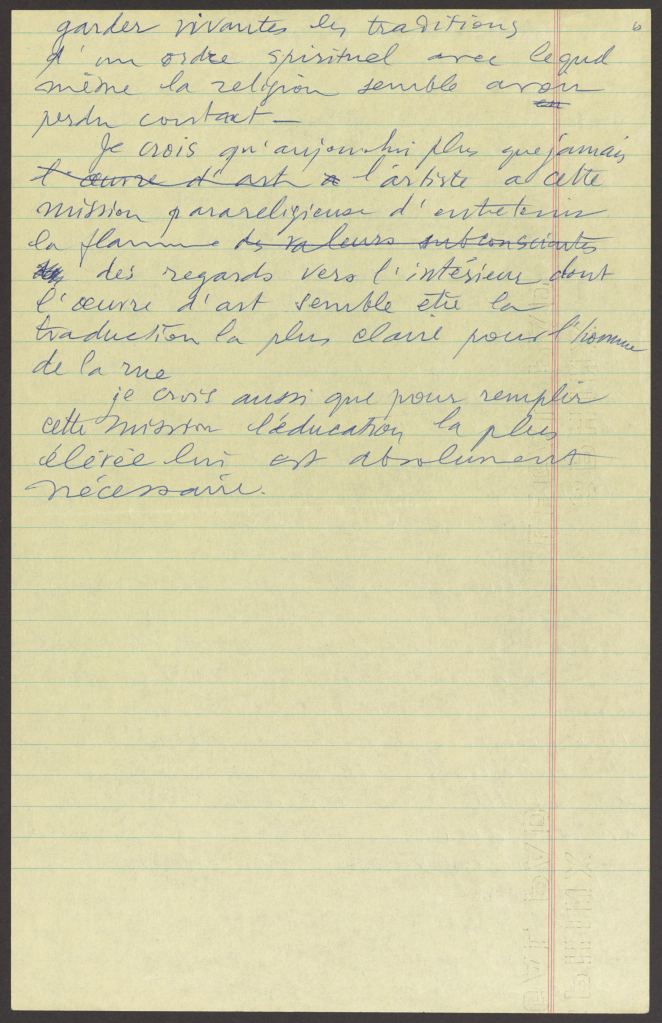 6
garder vivantes les traditions
d'un ordre spirituel avec lequel
même la religion semble avoir
en
perdu contact —
Je crois qu'aujourd'hui plus que jamais
l'œuvre d'art a l'artiste a cette
mission parareligieuse d'entretenir
la flamme des valeurs subconscientes
des regards vers l'intérieur dont
l'œuvre d'art semble être la
traduction la plus claire pour l'homme
de la rue
je crois aussi que pour remplir
cette mission l'éducation la plus
élevée lui est absolument
nécessaire.